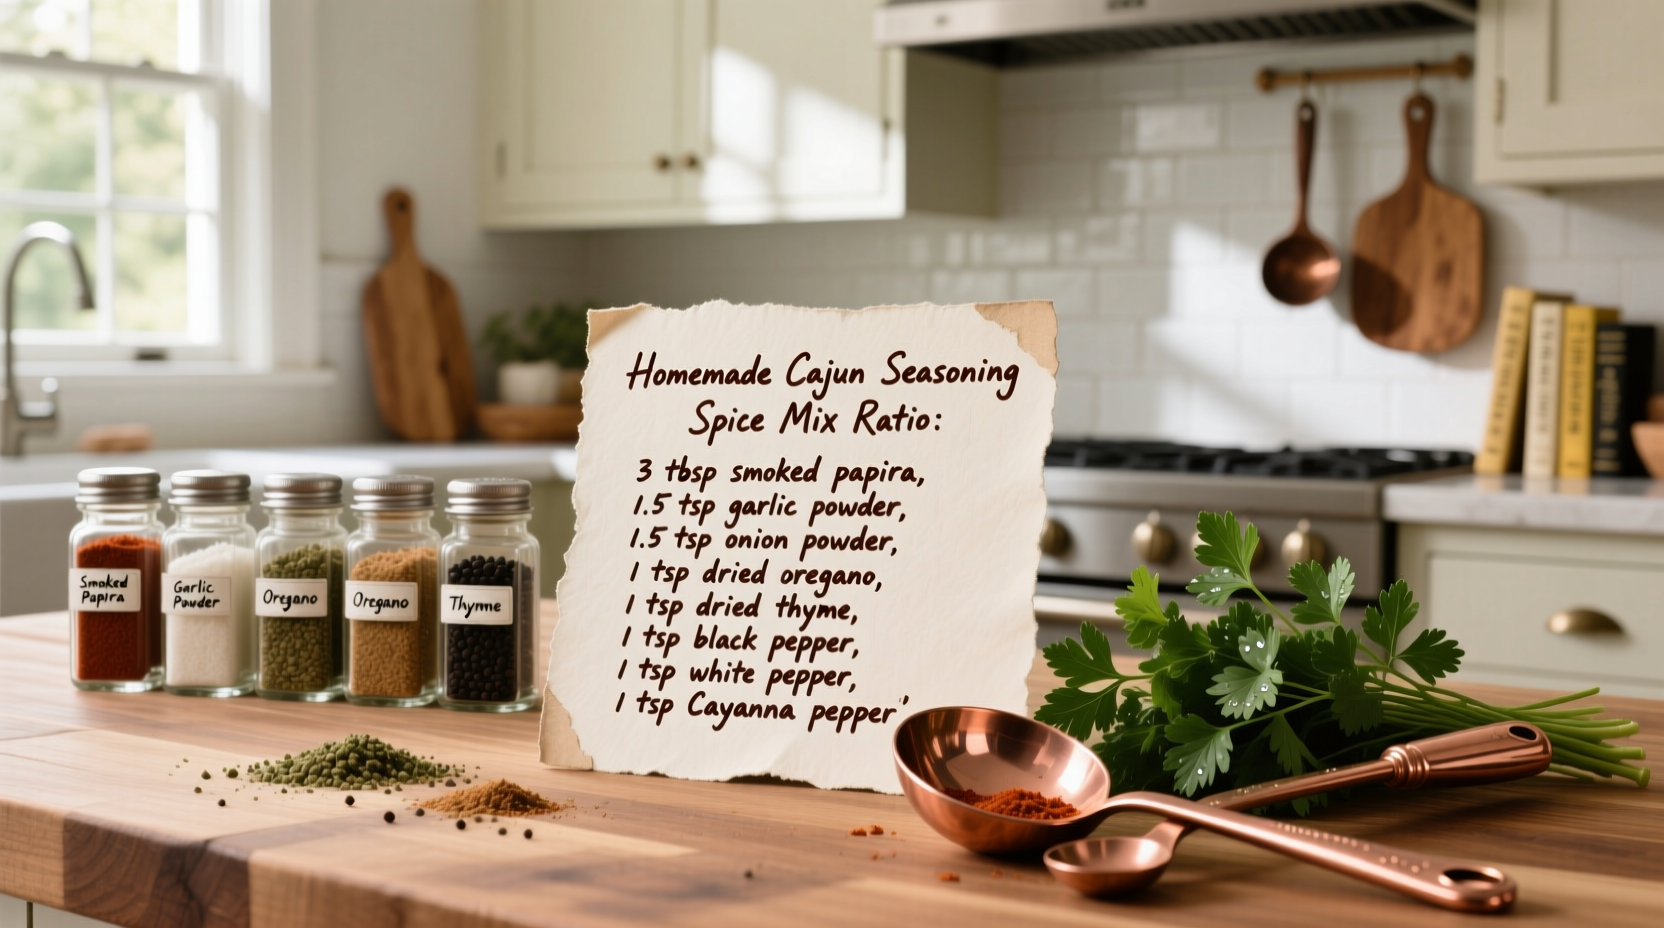 Homemade Cajun Seasoning
Spice Mix Ratio:
3 tbsp smoked papira,
1.5 tsp garlic powder,
1.5 tsp onion powder,
1 tsp dried oregano,
1 tsp dried thyme,
1 tsp black pepper,
1 tsp white pepper,
1 tsp Cayanna pepper'
Smoked
Papira
Garlic
Powder
Oregano
Oregano
Thyme